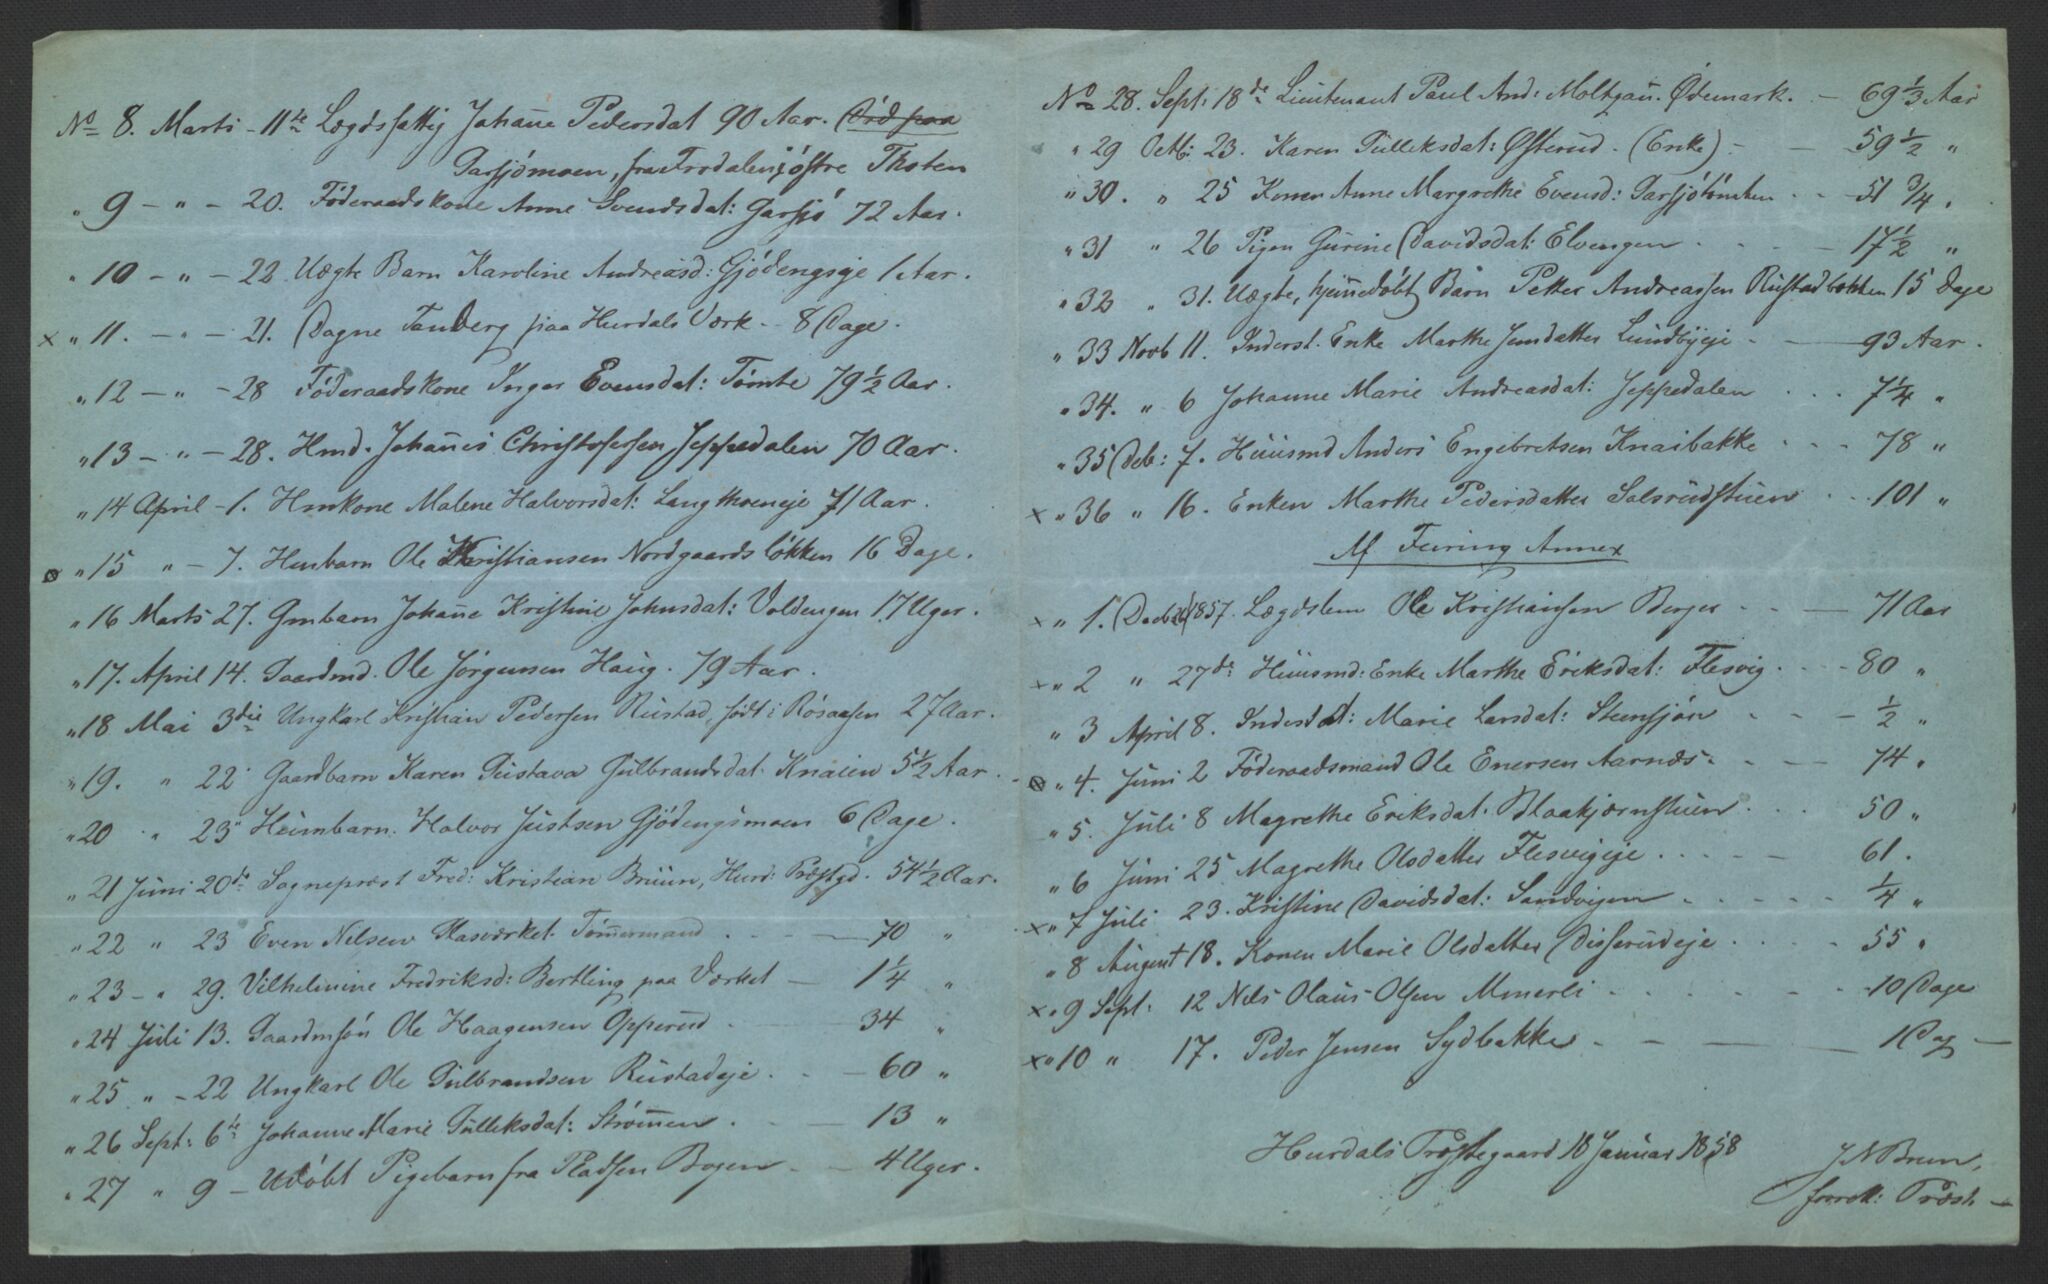 No 8. Marts - 11te Lægdsfattig Johan̄e Pedersdat 90 Aar. (Ørd paa
Garsjömoen, fra Frodalen, östre Thoten
" 9 - " - 20. Föderaadskone Anne Svendsdat: Garsjö 72 Aar.
" 10 - " - 22 Uægte Barn Karoline Andreasd: Gjödengseje 1 Aar.
x " 11. - " - 21. Dagne Tandberg paa Hurdals Værk - 8 Dage.
" 12 - " - 28 Föderaadskone Inger Evensdat: Tömte 79 1/2 Aar.
" 13 - " - 28. Hmd. Johan̄es Christofersen Jeppedalen 70 Aar.
" 14 April - 1. Hmkone Malene Halvorsdat: Langthoneje 71 Aar.
ø " 15 " - 7. Husbarn Ole Kristiansen Nordgaardslökken 16 Dage.
" 16 Marts 27. Gmbarn Johan̄e Kristine Johnsdat: Voldengen 17 Uger.
" 17. April 14. Gaardmd. Ole Jörgensen Haug. 79 Aar.
" 18 Mai 3die Ungkarl Kristian Pedersen Rustad, födt i Rösaasen 27 Aar.
" 19. " 22 Gaardbarn Karen Gustava Gulbrandsdat. Knaien 5 1/2 Aar.
" 20 " 23 Heimbarn. Halvor Justsen Gjödengsmoen 6 Dage.
" 21 Juni 20de Sognepræst Fred: Kristian Bruun, Hurd: Præstgd. 54 1/2 Aar.
" 22 " 23 Even Nilsen Glasværket. Töm̄ermand - 70 "
" 23 - " 29. Vilhelmine Fredriksd: Bertling paa Værket - 1 1/4 "
" 24 Juli 13. Gaardmsön Ole Haagensen Opperud - 34 "
" 25 " - 22 Ungkarl Ole Gulbrandsen Rustadeje - 60 "
" 26 Sept: 6te Johanne Marie Gulliksdat: Ström̄en - 13 "
" 27 " 9 - Udöbt Pigebarn fra Pladsen Bogen - 4 Uger.
No 28. Sept: 18de Lieutenant Paul And: Moltzau. Ødemark. - 69 1/3 Aar
" 29 Octb: 23. Karen Gulliksdat: Østerud - (Enke) - 59 1/2 "
" 30. " 25 Konen Anne Margrethe Evensd: Garsjötömten - 51 3/4 "
" 31 " 26 Pigen Gurine Davidsdat: Elvengen - 17 1/2 "
" 32 " 31. Uægte, hjem̄edöbt Barn Petter Andreassen Rustadbakken 15 Dage
" 33 Novb 11. Inderst. Enke Marthe Jensdatter Lundbyeje - 93 Aar.
" 34. " 6 Johanne Marie Andreasdat: Jeppedalen - 7 1/4 "
" 35 Deb: 7. Huusmd Anders Engebretsen Knaibakke - 78 "
x " 36 " 16. Enken Marthe Pedersdatter Salsrudstuen - 101 "
Af Feiring Annex
x " 1. Decb 1857. Lægdslem Ole Kristiansen Berger - 71 Aar
x " 2 " 27de Huusmd: Enke Marthe Eriksdat: Flesvig - 80 "
" 3 April 8. Marie Larsdat: Steensjön - 1/2 "
ø " 4. Juni 2 Föderaadsmand Ole Enersen Aarnæs - 74 "
" 5. Juli 8 Magrethe Eriksdat: Blaakjærnstuen - 50 "
" 6 Juni 25 Magrethe Olsdatter Flesvigeje - 61.
x " 7 Juli 23. Kristine Davidsdat: Sandvigen - 1/4 "
" 8 August 18. Konen Marie Olsdatter Disserudeje - 55 "
x " 9 Sept: 12 Nils Olaus Olsen - 10 Dage
x " 10 " 17. Peder Jensen Sydbakke - 1 Dag -
Hurdals Præstegaard 18 Januar 1858
J N Brun,
Præst. -